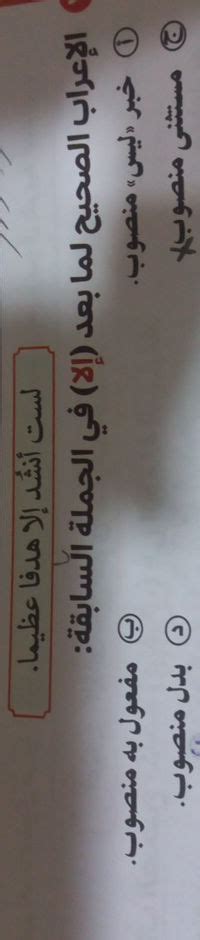 لست أنشد إلا هدفا عظيما.
الإعراب الصحيح لما بعد (إلا) في الجملة السابقة:
أ خبر «ليس» منصوب. ب مفعول به منصوب.
ج مستثنى منصوب. د بدل منصوب.